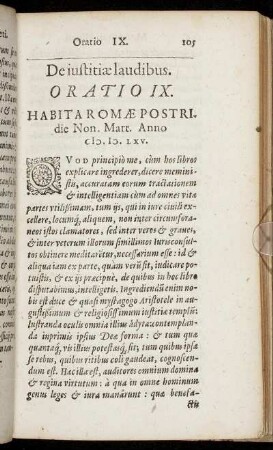 Oratio IX. 105
De iustitiæ laudibus.
ORATIO IX.
HABITA ROMÆ POSTRI.
die Non. Mart. Anno
CIƆ. IƆ. LXV.
QVOD principio me, cùm hos libros
explicare ingrederer, dicere memini-
stis, accuratam eorum tractationem
& intelligentiam cùm ad omnes vitæ
partes vtilissimam, tum ijs, qui in iure ciuili ex-
cellere, locumq́; aliquem, non inter circumfora-
neos istos clamatores, sed inter veros & graues,
& inter veterum illorum simillimos Iurisconsul-
tos obtinere meditarẽtur, necessarium esse: id &
aliqua iam ex parte, quàm verũ sit, indicare po-
tuistis, & ex ijs præcipuè, de quibus hoc libro
disputabimus, intelligetis. Ingrediendũ enim no-
bis est duce & quasi mystagogo Aristotele in au-
gustissimum & religiosissimum iustitiæ templũ:
lustranda oculis omnia illius ádyta: contemplan-
da inprimis ipsius Deæ forma: & tum qua
quantaq́; vi illius potest. atq́; sit, tum quibus ipsa
se rebus, quibus ritibus coli gaudeat, cognoscen-
dum est. Hæc illa est, auditores omnium domina
& regina virtutum: à qua in omne hominum
genus leges & iura manârunt: quæ benefa-
ctis